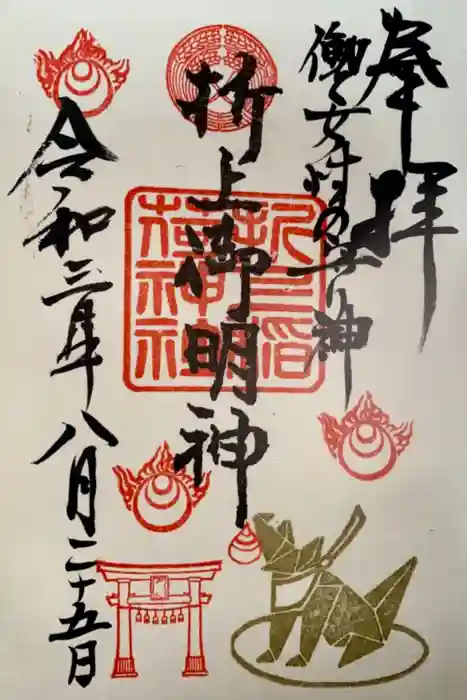 奉拝
働く女性の守り神
折上御明神
折上稲荷神社
令和三年八月二十五日